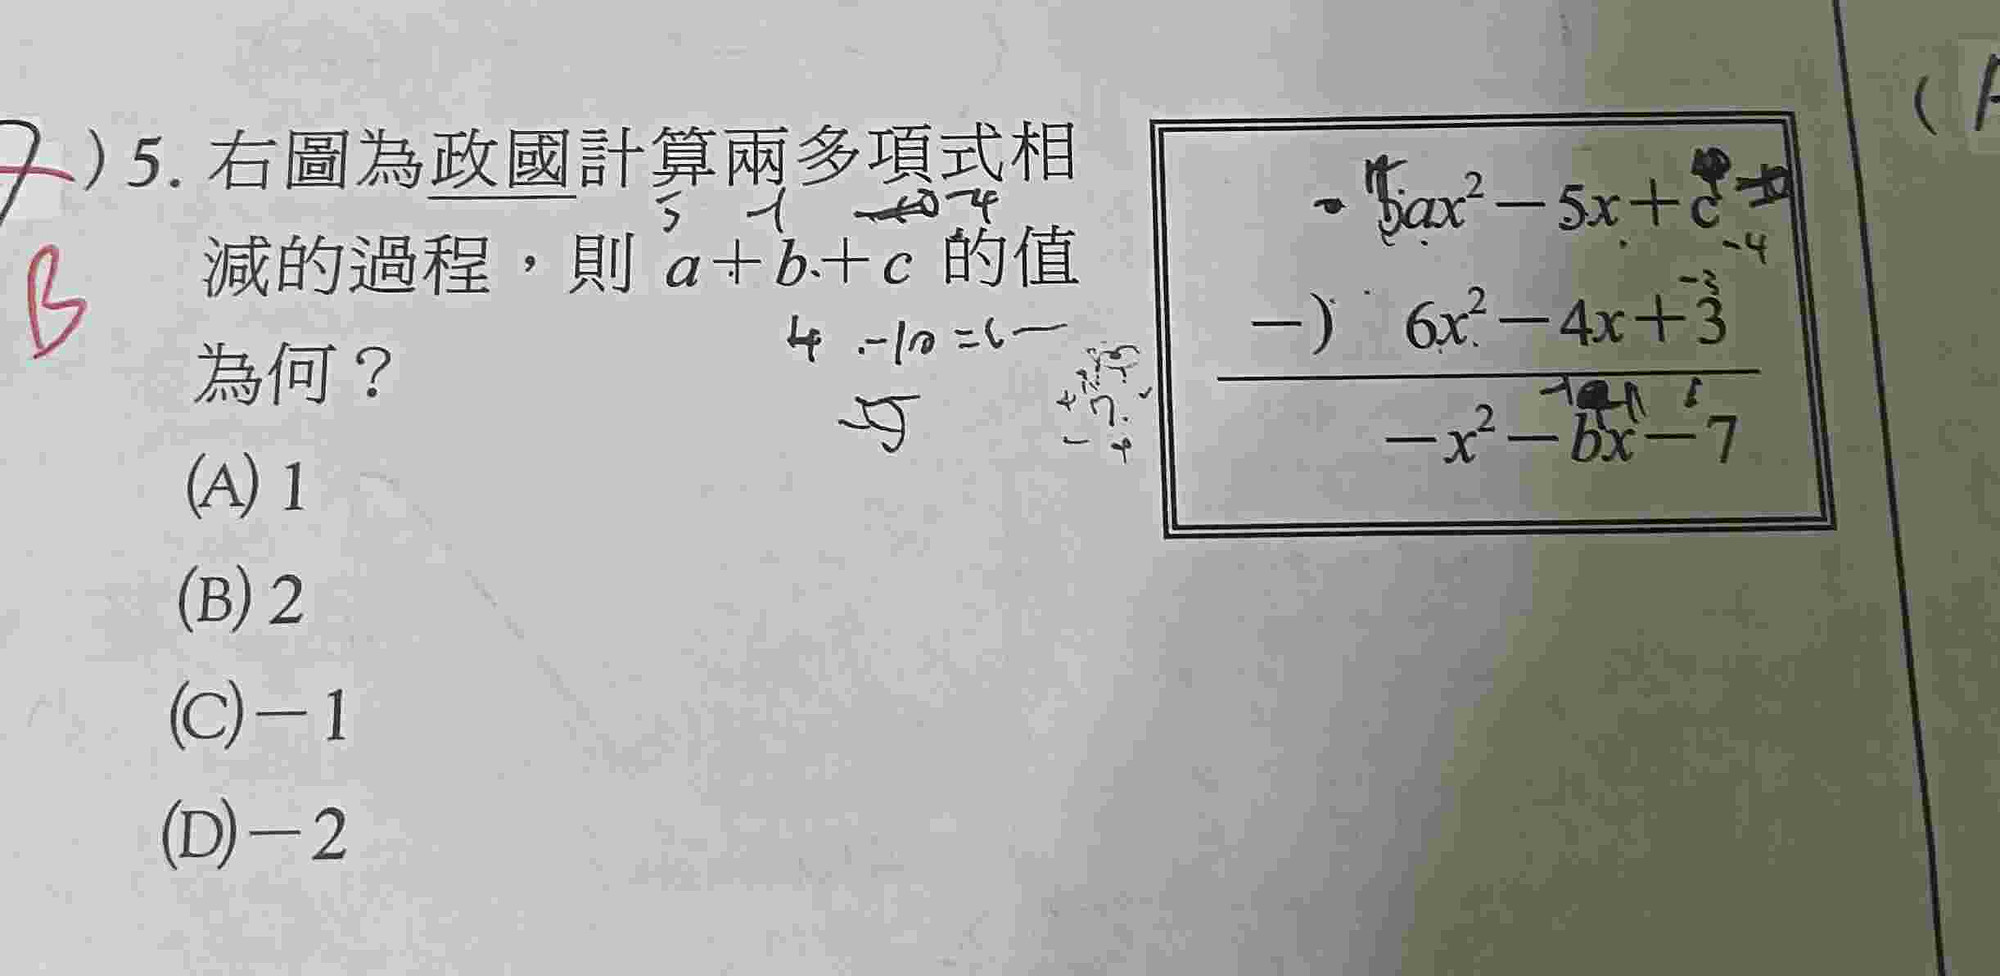 ) 5. 右圖為政國計算兩多項式相
5 -1 -4
減的過程，則 a＋b＋c 的值
B
4 -10 =6-
為何？
-5
(A) 1
(B) 2
(C)－1
(D)－2
ax²－5x＋c
-4
-3
－) 6x²－4x＋3
－x²－bx－7
(